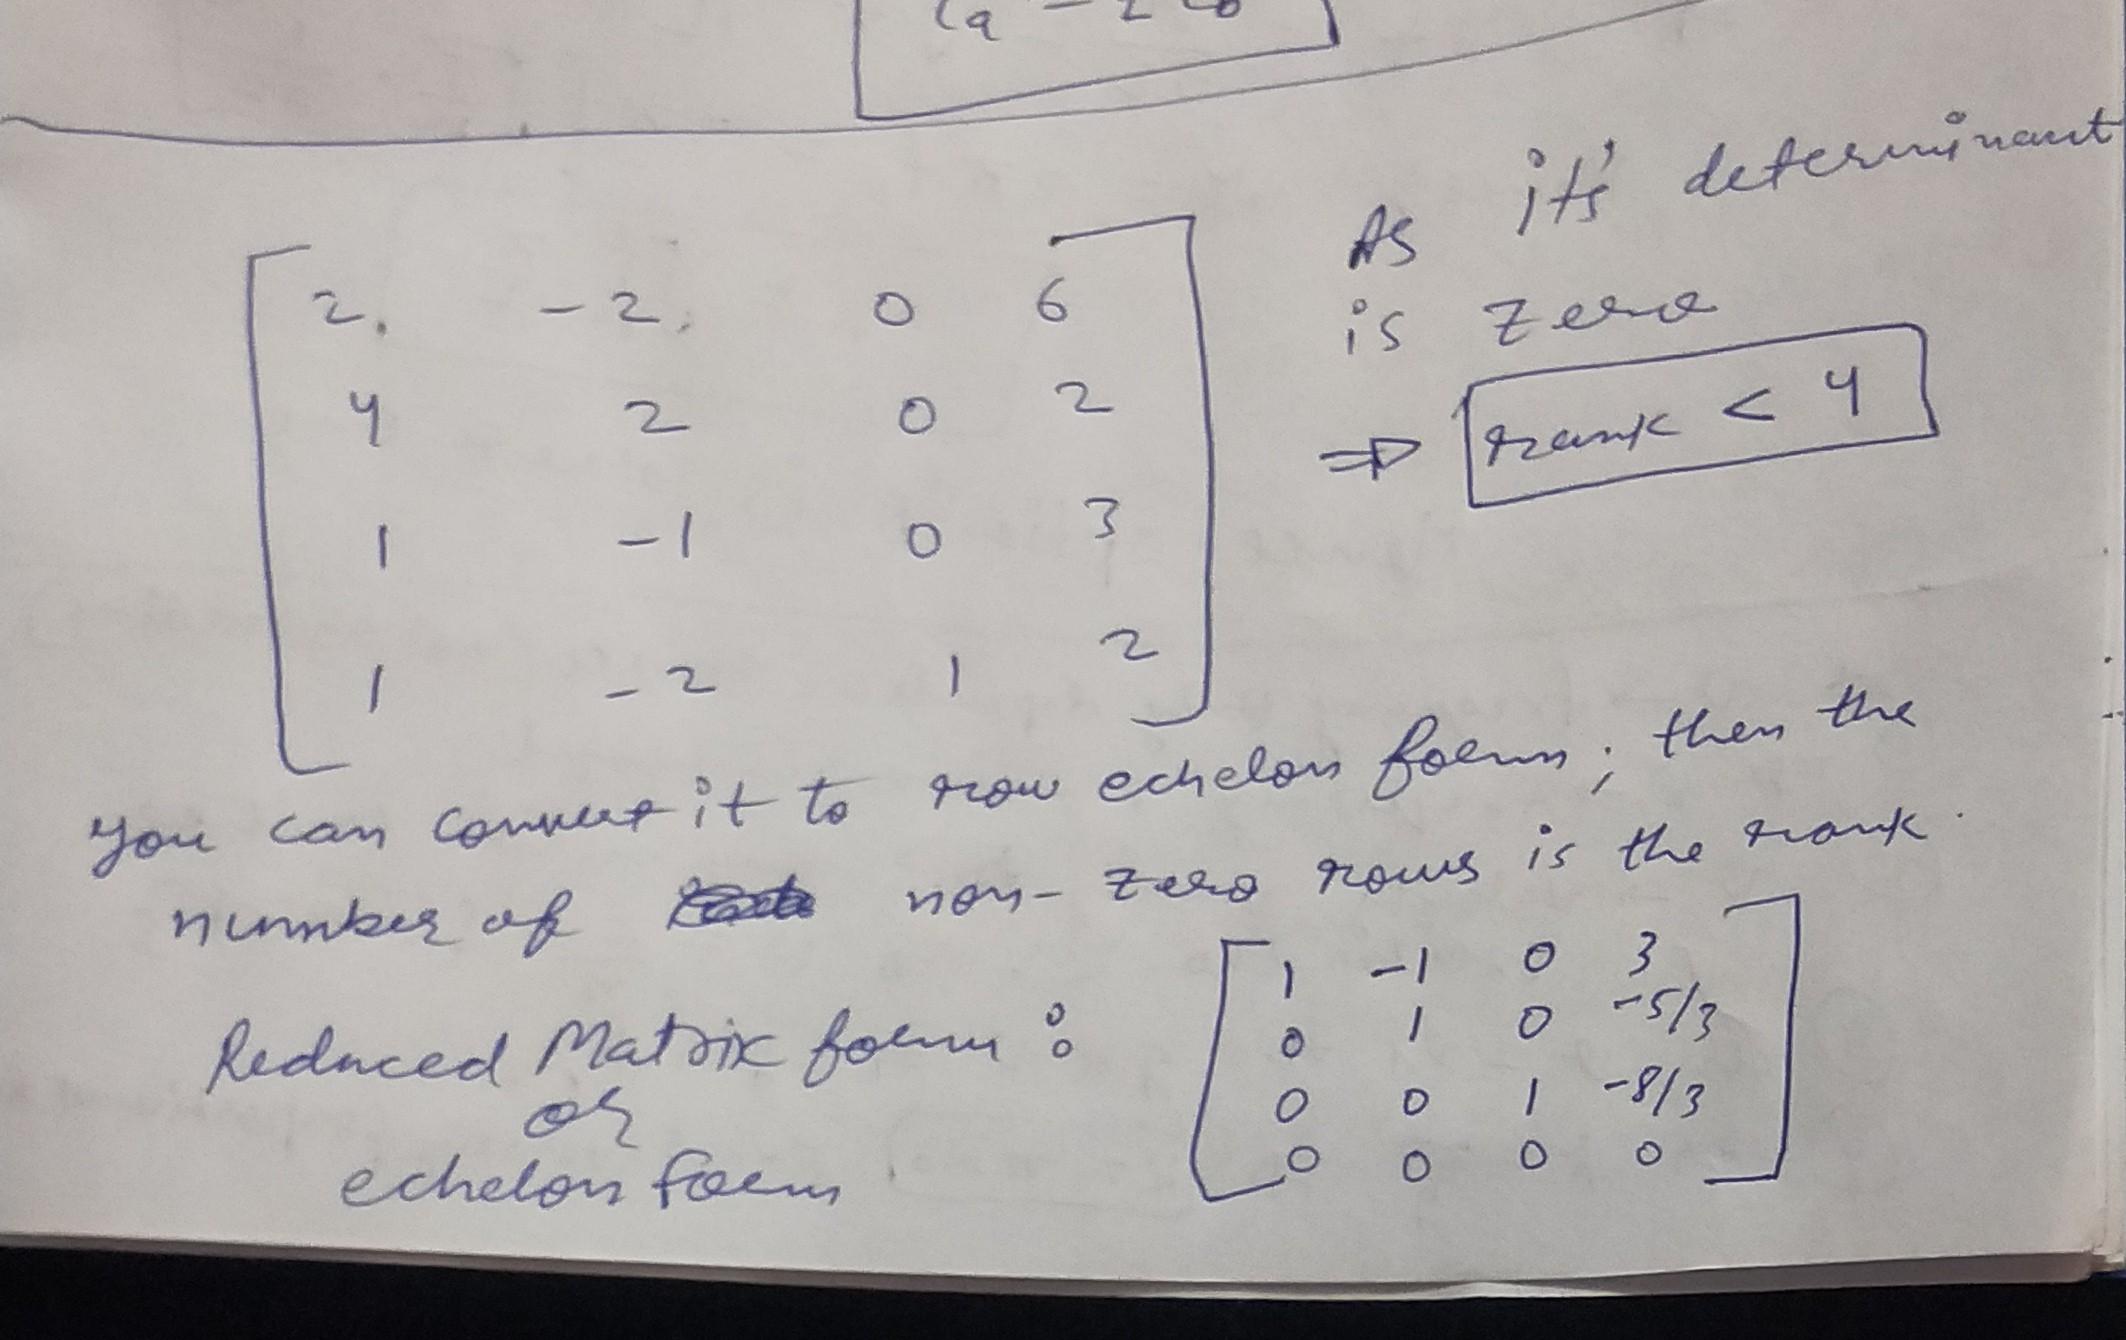 As it's determinant
is zero
⇒ rank < 4
2 -2 0 6
4 2 0 2
1 -1 0 3
1 -2 1 2
you can convert it to row echelon form; then the
number of non-zero rows is the rank.
Reduced Matrix form :
or
echelon form
1 -1 0 3
0 1 0 -5/3
0 0 1 -8/3
0 0 0 0